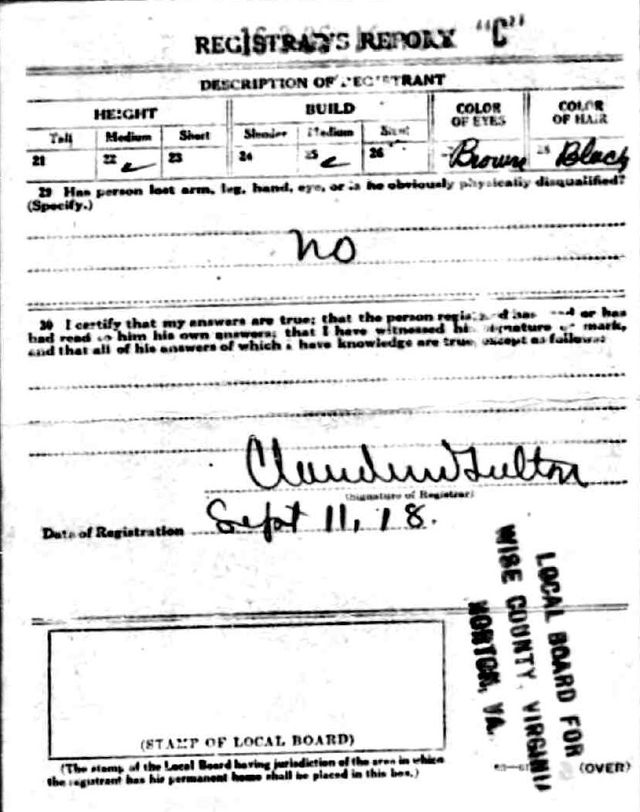 REGISTRAR'S REPORT "C"
DESCRIPTION OF REGISTRANT
HEIGHT BUILD COLOR OF EYES COLOR OF HAIR
Tall Medium Short Slender Medium Stout
21 22 ✓ 23 24 25 ✓ 26 Brown 28 Black
29 Has person lost arm, leg, hand, eye, or is he obviously physically disqualified?
(Specify.)
no
30 I certify that my answers are true; that the person registered has read or has
had read to him his own answers; that I have witnessed his signature or mark,
and that all of his answers of which I have knowledge are true, except as follows:
(Signature of Registrar)
Date of Registration Sept 11, 18.
LOCAL BOARD FOR
WISE COUNTY, VIRGINIA
NORTON, VA.
(STAMP OF LOCAL BOARD)
(The stamp of the Local Board having jurisdiction of the area in which
the registrant has his permanent home shall be placed in this box.)
(OVER)